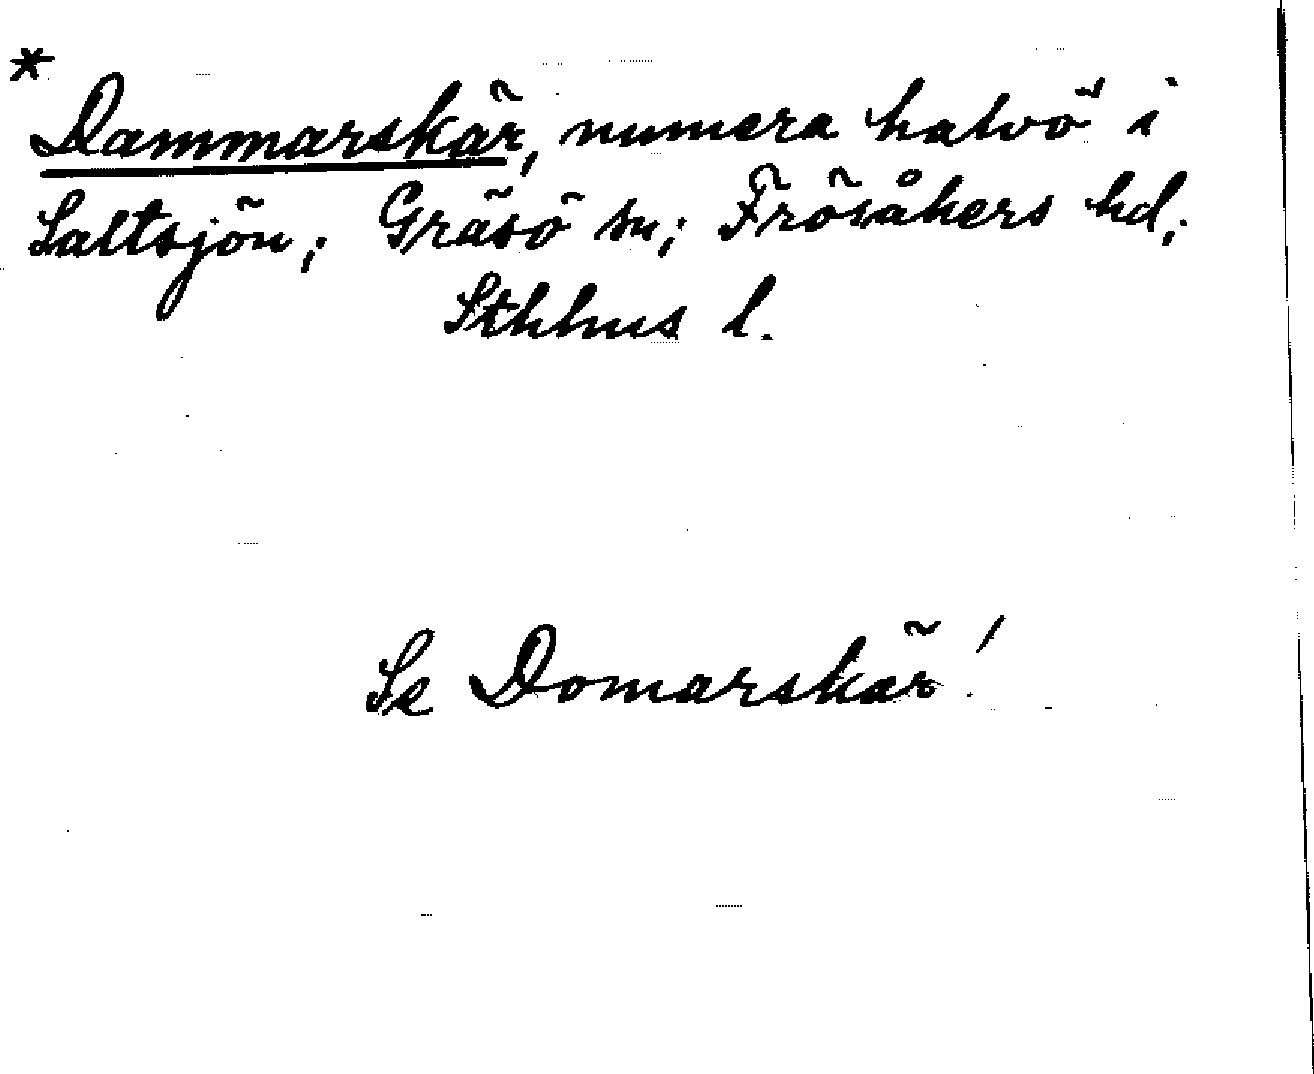 *
Dammarskär, numera halvö i
Saltsjön; Gräsö sn; Frösåkers hd;
Sthhus l.
Se Domarskär!